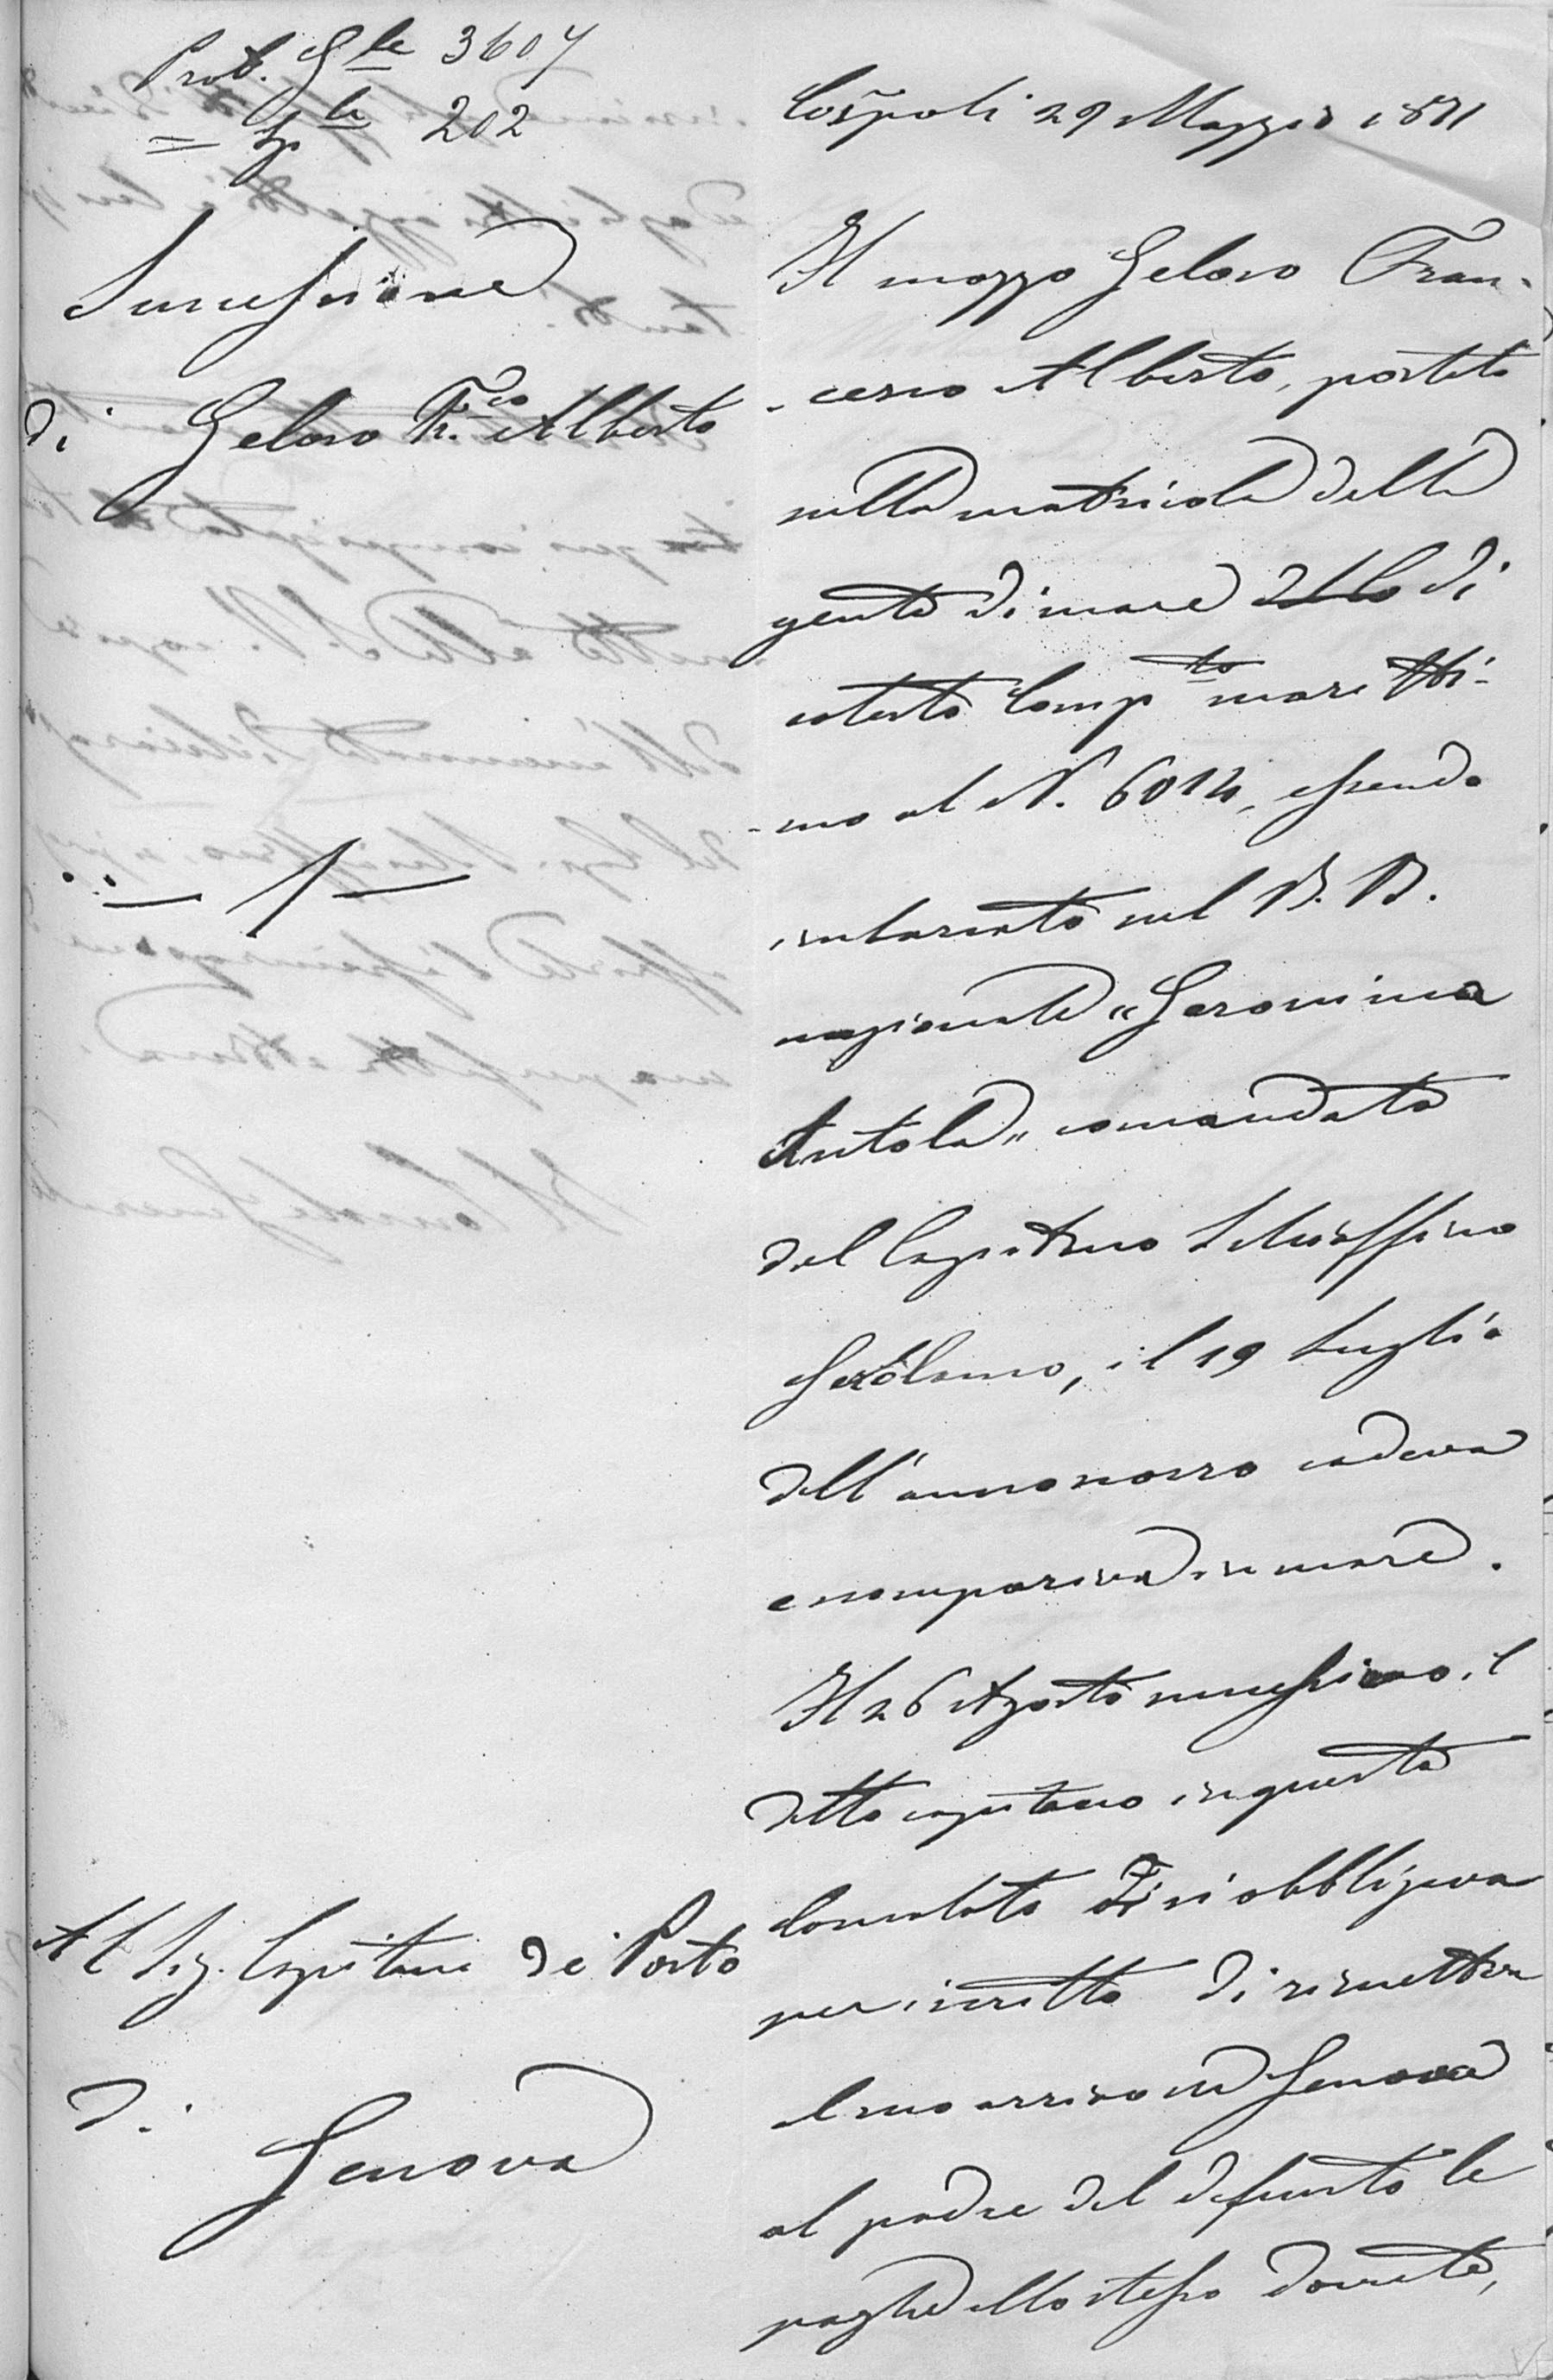 Prot. Gle 3607
= Sple 202
Cos̃poli 29 Maggio 1871
Successione
di Geloso Fr.co Alberto
— 1 —
Al Sig. Capitano di Porto
di
Genova
Il mozzo Geloso Fran-
-cesco Alberto, portato
nella matricola della
gente di mare di
cotesto Comp.to maritti-
-mo al N. 6014, essendo
imbarcato sul B. B.
nazionale "Geronima
Artola" comandato
dal Capitano Schiaffino
Gerolamo, il 19 Luglio
dell'anno scorso cadeva
e scompariva in mare.
Il 26 Agosto successivo il
detto capitano in questo
Consolato si obbligava
per iscritto di rimettere
al suo arrivo in Genova
al padre del defunto le
paghe allo stesso dovute,